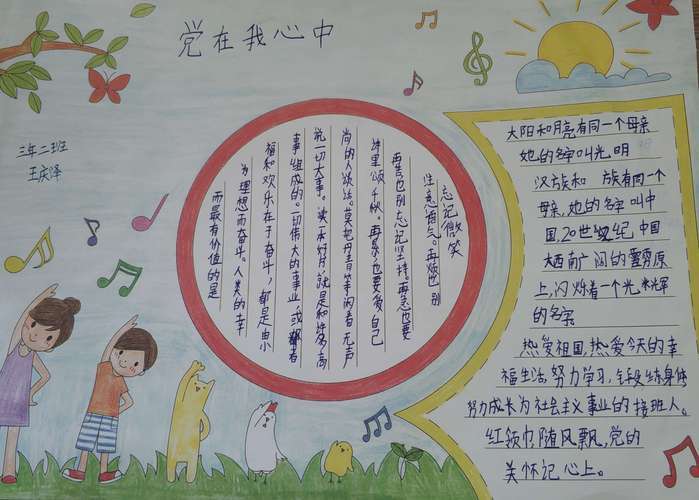 党在我心中
三年二班
王庆泽
忘记微笑
注意语气。再烦也别
再苦也别忘记坚持。再急也要
绅里颂千秋。再累也要爱自己
尚的人谈话。莫把丹青等闲看无声
说一切大事。读一本好书，就是和许多高
事组成的。一切伟大的事业，或者
福和欢乐在于奋斗，都是由小
为理想而奋斗。人类的幸
而最有价值的是
大阳和月亮有同一个母亲
她的名字叫光明
汉族和 族有同一个
母亲，她的名字叫中
国，20世纪，中国
大西南广阔的雪原
上，闪烁着一个光辉
的名字
热爱祖国，热爱今天的幸
福生活，努力学习，锻炼身体
努力成长为社会主义事业的接班人。
红领巾随风飘，党的
关怀记心上。